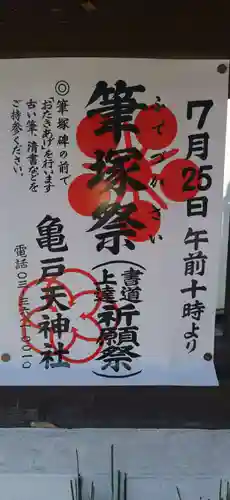 7月25日午前十時より
ふでづかさい
筆塚祭
（書道上達祈願祭）
◎筆塚碑の前で
「おたきあげ」を行います
古い筆、清書などを
ご持参ください。
亀戸天神社
電話〇三-三六八一-〇〇一〇